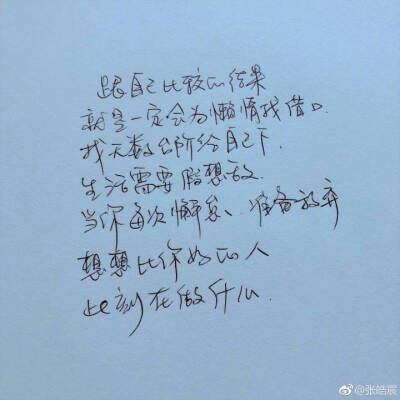 跟自己比较的结果
就是一定会为懒惰找借口
找无数台阶给自己下.
生活需要假想敌.
当你每次懈怠、准备放弃
想想比你好的人
此刻在做什么.
@张皓宸